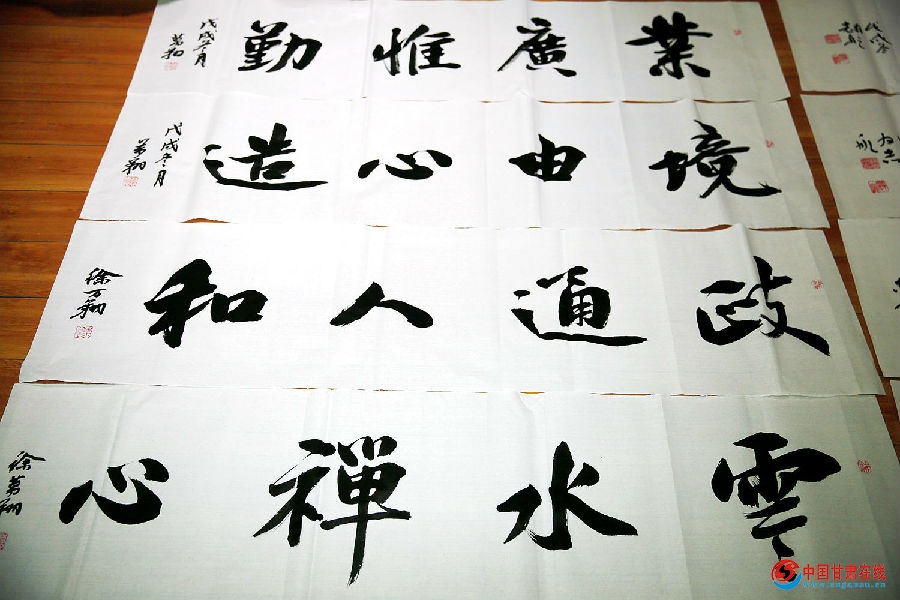 業廣惟勤
戊戌冬月
萬翔
境由心造
戊戌冬月
萬翔
政通人和
徐万翔
雲水禪心
徐萬翔
中国甘肃在线